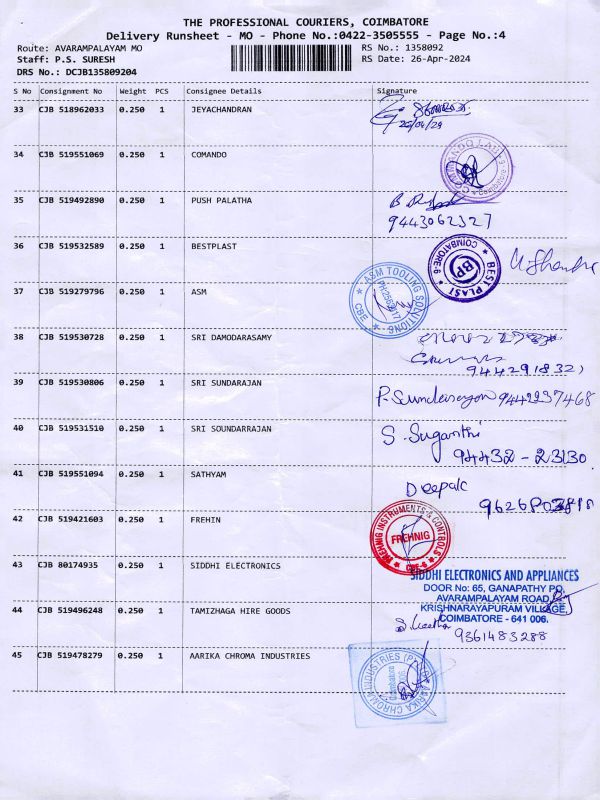 THE PROFESSIONAL COURIERS, COIMBATORE
Delivery Runsheet - MO - Phone No.:0422-3505555 - Page No.:4
Route: AVARAMPALAYAM MO RS No.: 1358092
Staff: P.S. SURESH RS Date: 26-Apr-2024
DRS No.: DCJB135809204
S No Consignment No Weight PCS Consignee Details Signature
33 CJB 518962033 0.250 1 JEYACHANDRAN
34 CJB 519551069 0.250 1 COMANDO
COMMANDO LAB
Coimbatore
35 CJB 519492890 0.250 1 PUSH PALATHA
9443062327
36 CJB 519532589 0.250 1 BESTPLAST
COIMBATORE-6
BP
BEST PLAST
37 CJB 519279796 0.250 1 ASM
ASM TOOLING SOLUTIONS
CBE
38 CJB 519530728 0.250 1 SRI DAMODARASAMY
39 CJB 519530806 0.250 1 SRI SUNDARAJAN
P. Sundarajan 9442237468
40 CJB 519531510 0.250 1 SRI SOUNDARRAJAN
S. Suganthi
94432 - 23130
41 CJB 519551094 0.250 1 SATHYAM
Deepak
42 CJB 519421603 0.250 1 FREHIN
FREHNIG INSTRUMENTS & CONTROLS
FREHNIG
CBE-6
43 CJB 80174935 0.250 1 SIDDHI ELECTRONICS
SIDDHI ELECTRONICS AND APPLIANCES
DOOR No: 65, GANAPATHY PO,
AVARAMPALAYAM ROAD,
KRISHNARAYAPURAM VILLAGE,
COIMBATORE - 641 006.
44 CJB 519496248 0.250 1 TAMIZHAGA HIRE GOODS
9361483288
45 CJB 519478279 0.250 1 AARIKA CHROMA INDUSTRIES
AARIKA CHROMA INDUSTRIES (P) LTD